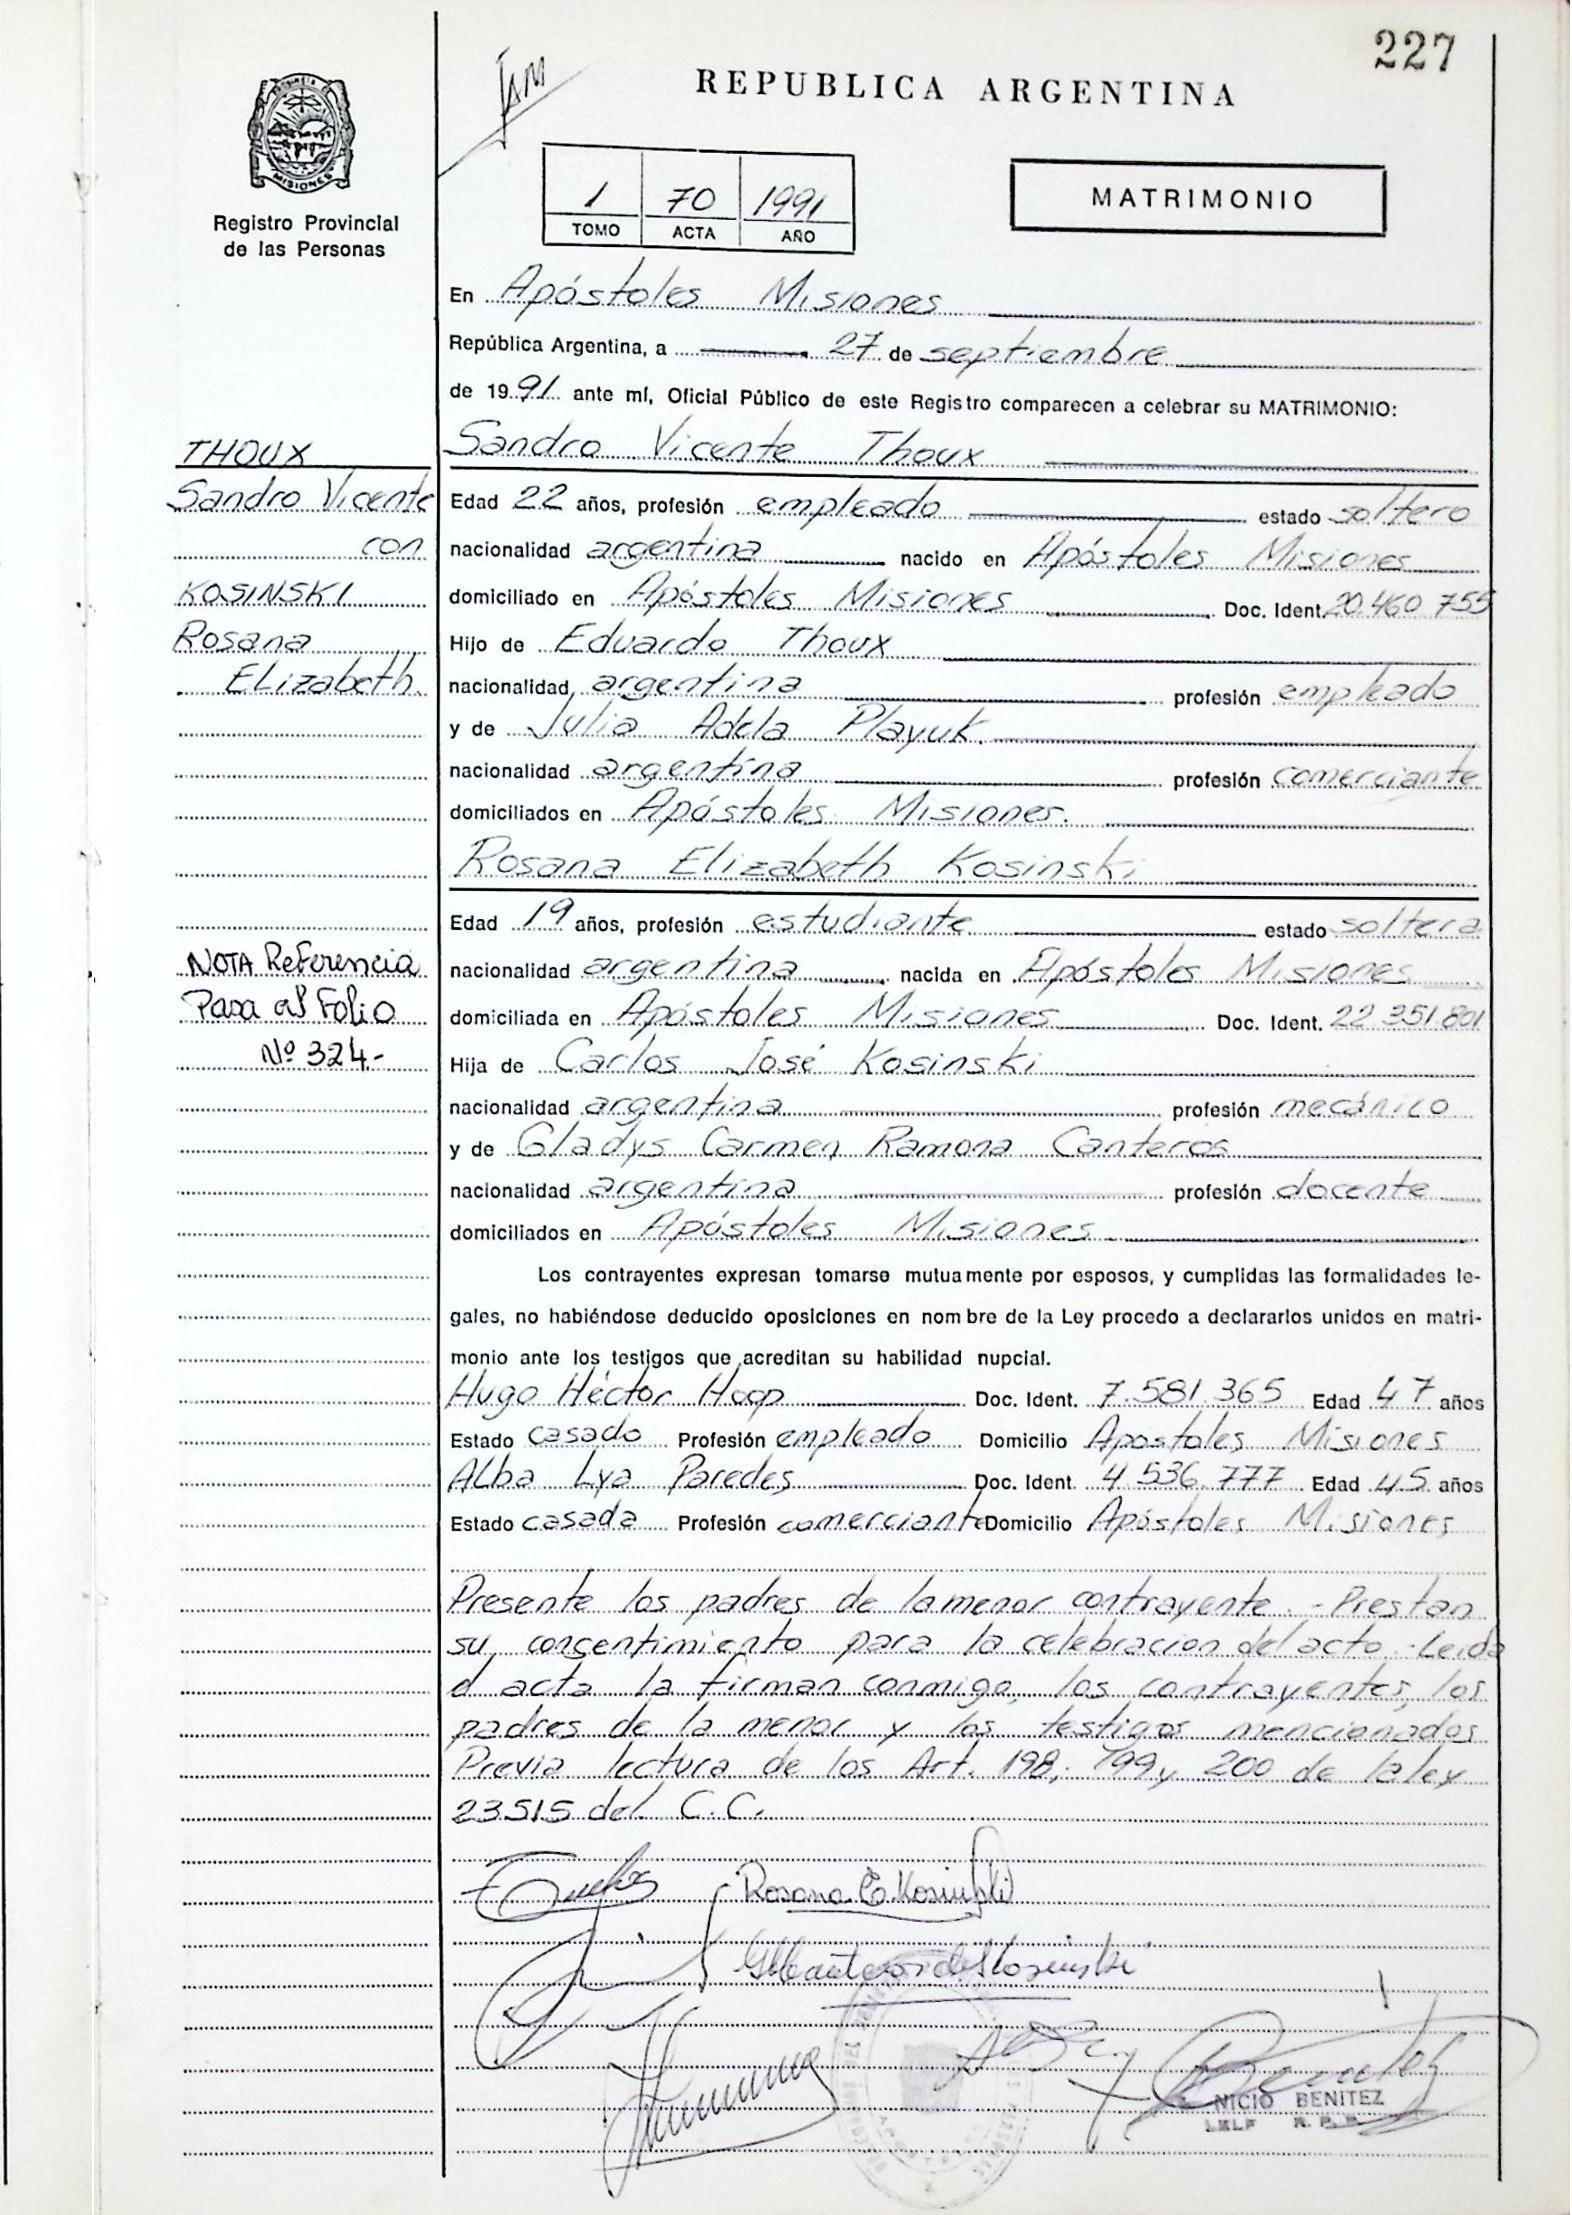 227
REPUBLICA ARGENTINA
MISIONES
Registro Provincial
de las Personas
1 70 1991
TOMO ACTA AÑO
MATRIMONIO
En Apóstoles Misiones
República Argentina, a 27 de septiembre
de 1991 ante mí, Oficial Público de este Registro comparecen a celebrar su MATRIMONIO:
THOUX
Sandro Vicente
con
KOSINSKI
Rosana
Elizabeth.
Sandro Vicente Thoux
Edad 22 años, profesión empleado estado soltero
nacionalidad argentina nacido en Apóstoles Misiones
domiciliado en Apóstoles Misiones Doc. Ident. 20.460.755
Hijo de Eduardo Thoux
nacionalidad argentina profesión empleado
y de Julia Adela Playuk
nacionalidad argentina profesión comerciante
domiciliados en Apóstoles Misiones.
Rosana Elizabeth Kosinski
Edad 19 años, profesión estudiante estado soltera
nacionalidad argentina nacida en Apóstoles Misiones
domiciliada en Apóstoles Misiones Doc. Ident. 22 351.801
Hija de Carlos José Kosinski
nacionalidad argentina profesión mecánico
y de Gladys Carmen Ramona Canteros
nacionalidad argentina profesión docente
domiciliados en Apóstoles Misiones
NOTA Referencia
Pasa al Folio
Nº 324.-
Los contrayentes expresan tomarse mutuamente por esposos, y cumplidas las formalidades le-
gales, no habiéndose deducido oposiciones en nombre de la Ley procedo a declararlos unidos en matri-
monio ante los testigos que acreditan su habilidad nupcial.
Hugo Héctor Hoop Doc. Ident. 7.581.365 Edad 47 años
Estado casado Profesión empleado Domicilio Apostoles Misiones
Alba Lya Paredes Doc. Ident. 4.536.777 Edad 45 años
Estado casada Profesión comerciante Domicilio Apóstoles Misiones
Presente los padres de la menor contrayente.- Prestan
su consentimiento para la celebracion del acto.- Leida
el acta la firman conmigo, los contrayentes, los
padres de la menor y los testigos mencionados
Previa lectura de los Art. 198, 199 y 200 de la ley
23515 del C.C.
Rosana E. Kosinski
Canteros de Kosinski
NICIO BENITEZ